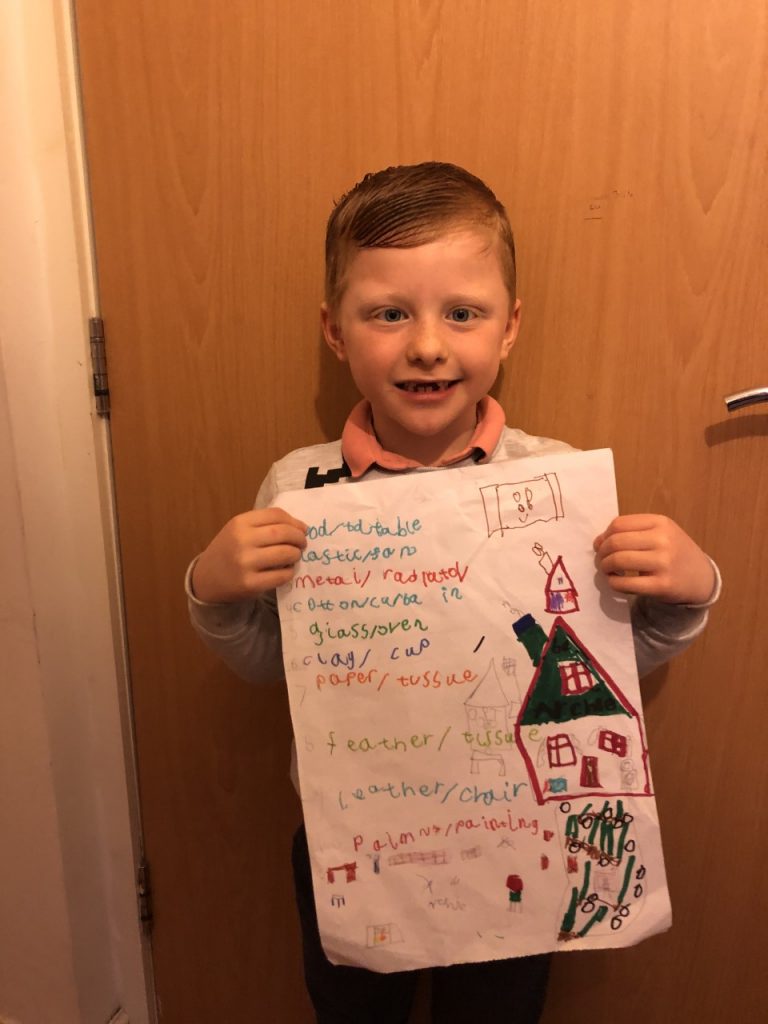 od/td/table
lastic/san
metal/ radiator
cotton/curta in
glass/oven
clay/ cup
paper/ tissue
feather/ tissue
leather/chair
/painting
Archie